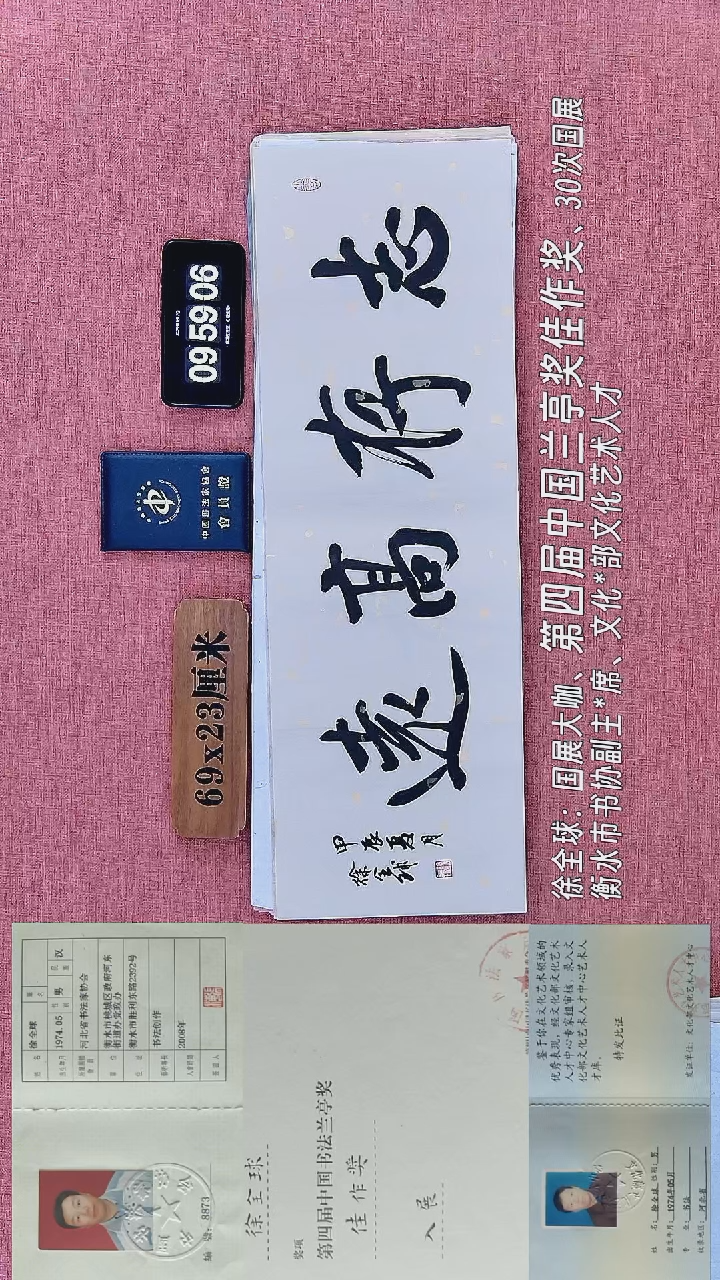 69x23厘米
中国书法家协会
會員證
09 59 06
志存高遠
甲辰夏月
徐全球
徐全球：国展大咖、第四届中国兰亭奖佳作奖、30次国展
衡水市书协副主*席、文化*部文化艺术人才
编号：8873
姓名 徐全球
1974.05 性别 男 民族 汉
河北省书法家协会
衡水市桃城区政府河东
街道办党政办
衡水市胜利东路2292号
书法创作
2008年
徐全球
奖项
第四届中国书法兰亭奖
佳作奖
入展
姓名：徐全球 性别：男
出生年月：1974年05月
专业：书法
鉴于你在文化艺术领域的
优秀表现，经文化部文化艺术
人才中心专家组审核，录入文
化部文化艺术人才中心艺术人
才库。
特发此证
发证单位：文化部文化艺术人才中心